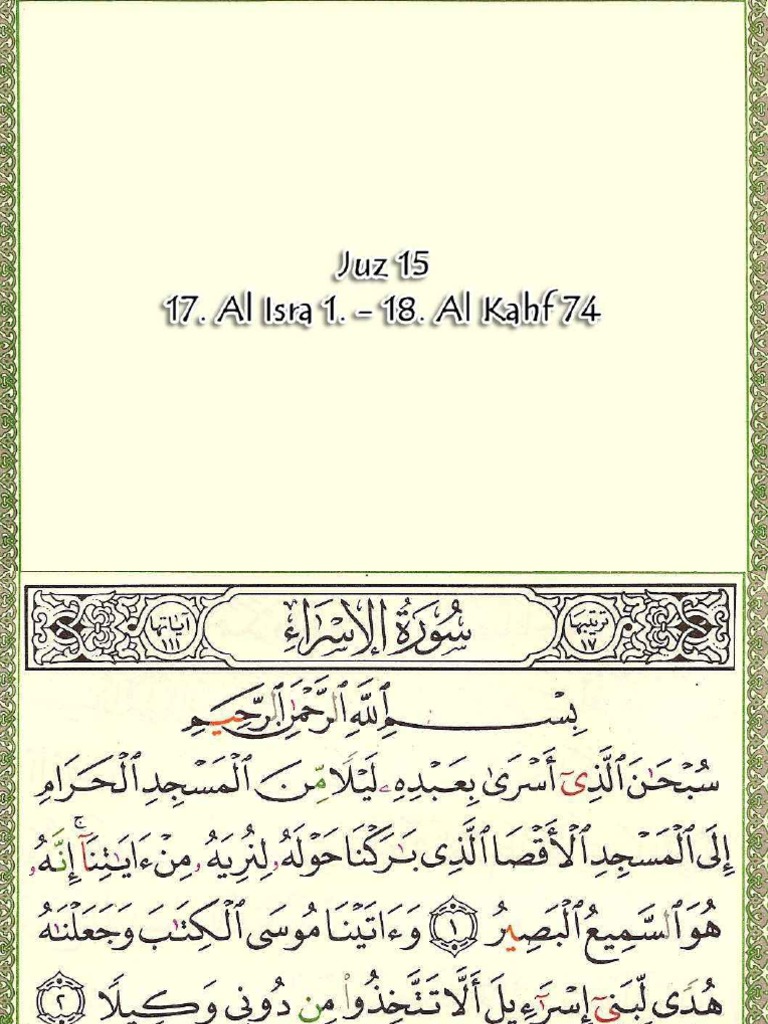 Juz 15
17. Al Isra 1. - 18. Al Kahf 74
ترتيبها ١٧ سُورَةُ الإِسْرَاءِ آياتها ١١١
بِسْمِ ٱللَّهِ ٱلرَّحْمَٰنِ ٱلرَّحِيمِ
سُبْحَٰنَ ٱلَّذِىٓ أَسْرَىٰ بِعَبْدِهِۦ لَيْلًا مِّنَ ٱلْمَسْجِدِ ٱلْحَرَامِ
إِلَى ٱلْمَسْجِدِ ٱلْأَقْصَا ٱلَّذِى بَٰرَكْنَا حَوْلَهُۥ لِنُرِيَهُۥ مِنْ ءَايَٰتِنَآ ۚ إِنَّهُۥ
هُوَ ٱلسَّمِيعُ ٱلْبَصِيرُ ١ وَءَاتَيْنَا مُوسَى ٱلْكِتَٰبَ وَجَعَلْنَٰهُ
هُدًى لِّبَنِىٓ إِسْرَٰٓءِيلَ أَلَّا تَتَّخِذُوا۟ مِن دُونِى وَكِيلًا ٢